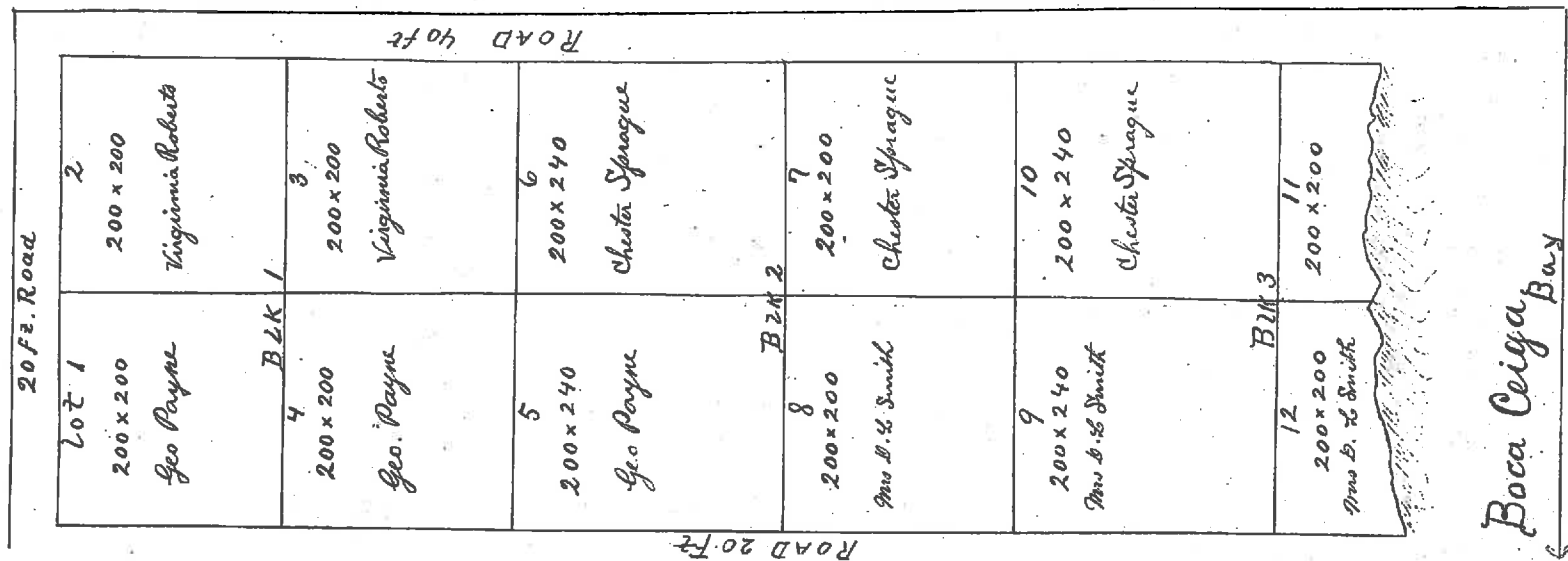 20 Ft. Road
ROAD 40 ft
Lot 1
200 x 200
Geo Payne
2
200 x 200
Virginia Roberts
BLK 1
4
200 x 200
Geo. Payne
3
200 x 200
Virginia Roberts
5
200 x 240
Geo Payne
6
200 x 240
Chester Sprague
BLK 2
8
200 x 200
Mrs D. L Smith
7
200 x 200
Chester Sprague
9
200 x 240
Mrs D. L Smith
10
200 x 240
Chester Sprague
BLK 3
12
200 x 200
Mrs D. L Smith
11
200 x 200
ROAD 20 Ft
Boca Ceiga
Bay